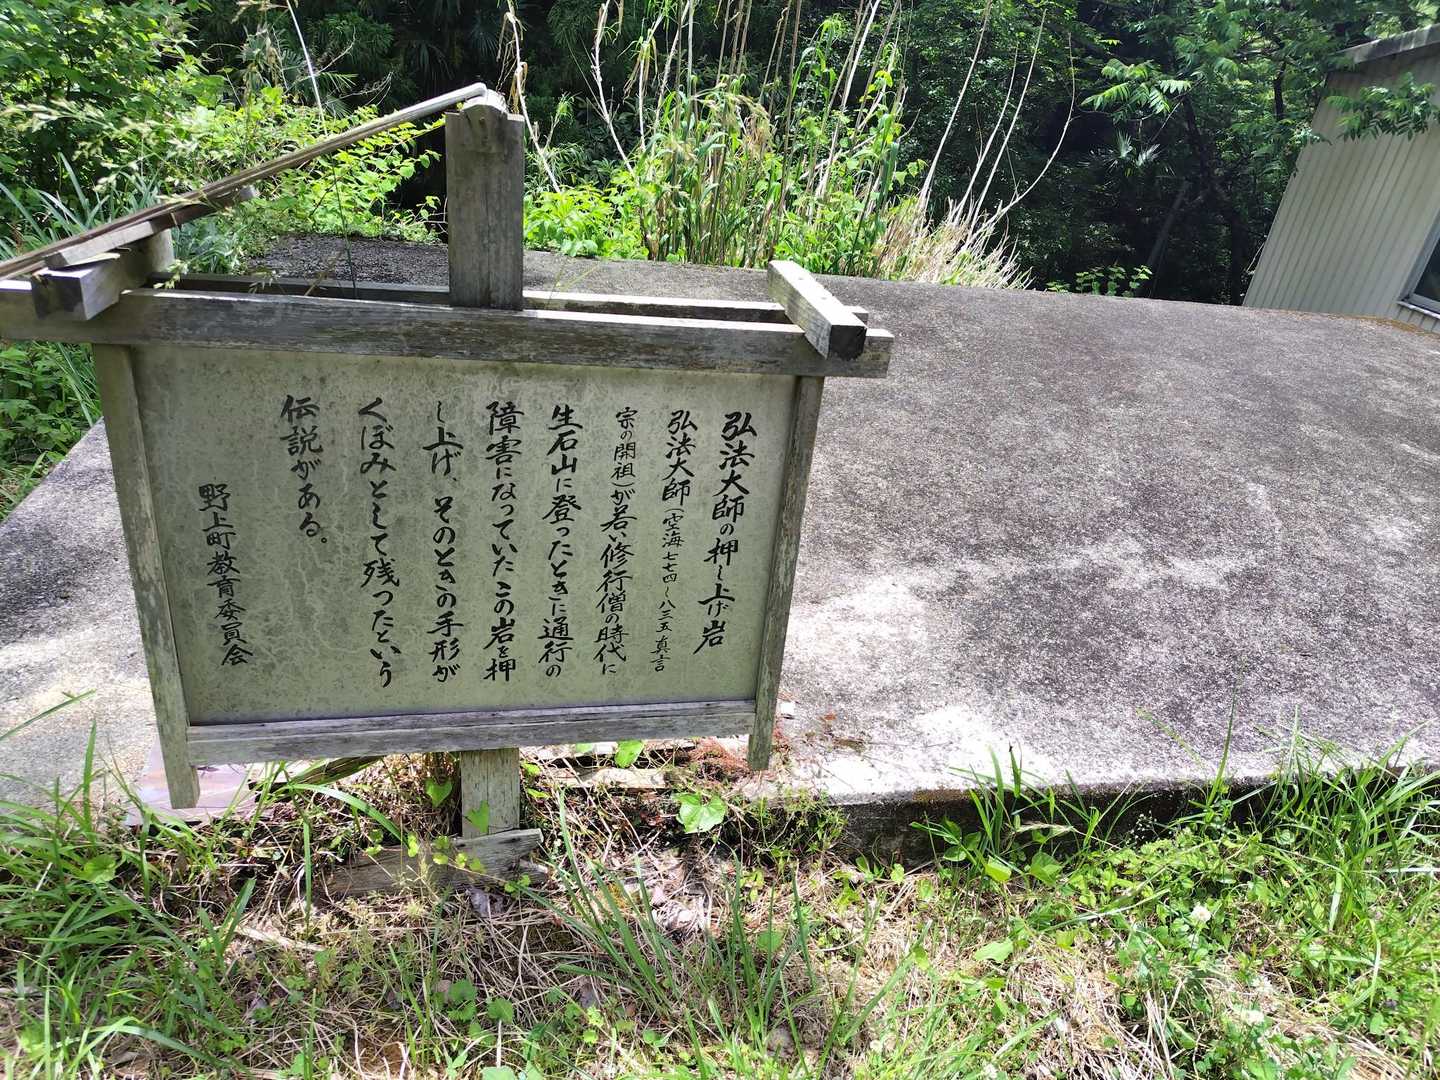 弘法大師の押し上げ岩
弘法大師(空海 七七四〜八三五 真言
宗の開祖)が若い修行僧の時代に
生石山に登ったときに通行の
障害になっていたこの岩を押
し上げ、そのときの手形が
くぼみとして残ったという
伝説がある。
野上町教育委員会